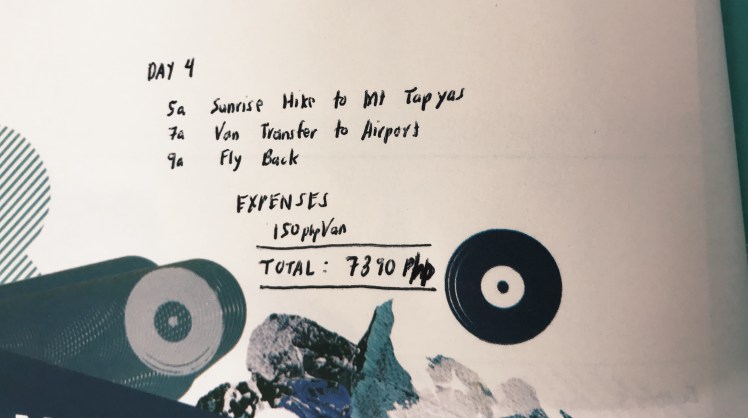 DAY 4
5a Sunrise Hike to Mt Tapyas
7a Van Transfer to Airport
9a Fly Back
EXPENSES
150php Van
TOTAL: 7390 Php